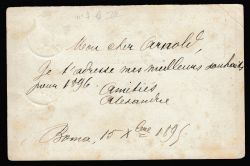 Mon cher Arnold,
Je t'adresse mes meilleurs souhaits
pour 1896. Amitiés
Alexandre
Boma, 15 Xbre 1895